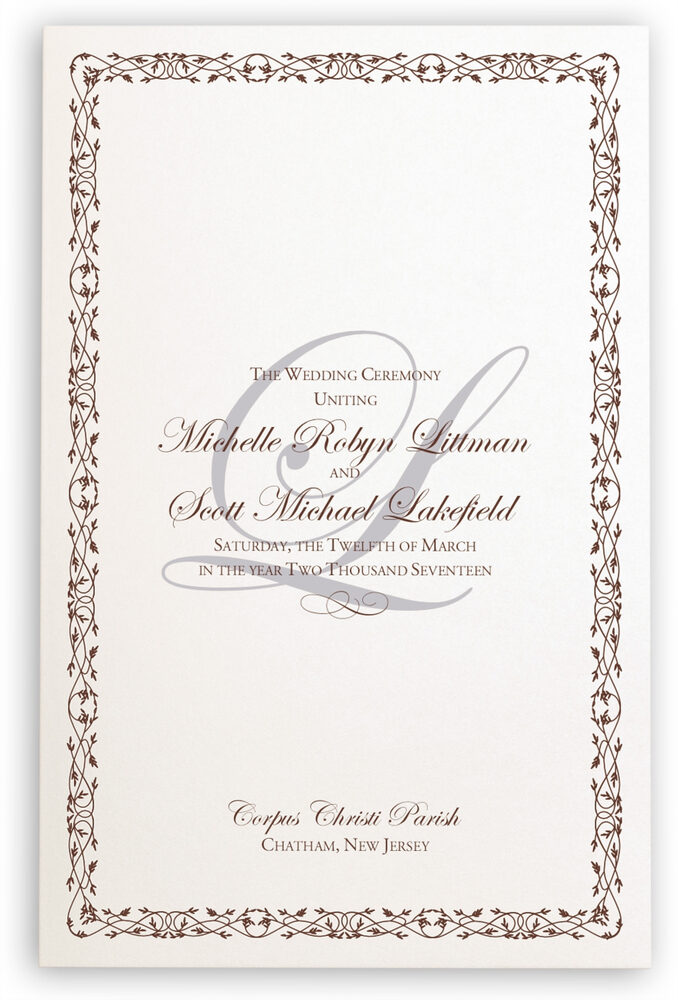 L
The Wedding Ceremony
Uniting
Michelle Robyn Littman
and
Scott Michael Lakefield
Saturday, the Twelfth of March
in the year Two Thousand Seventeen
Corpus Christi Parish
Chatham, New Jersey